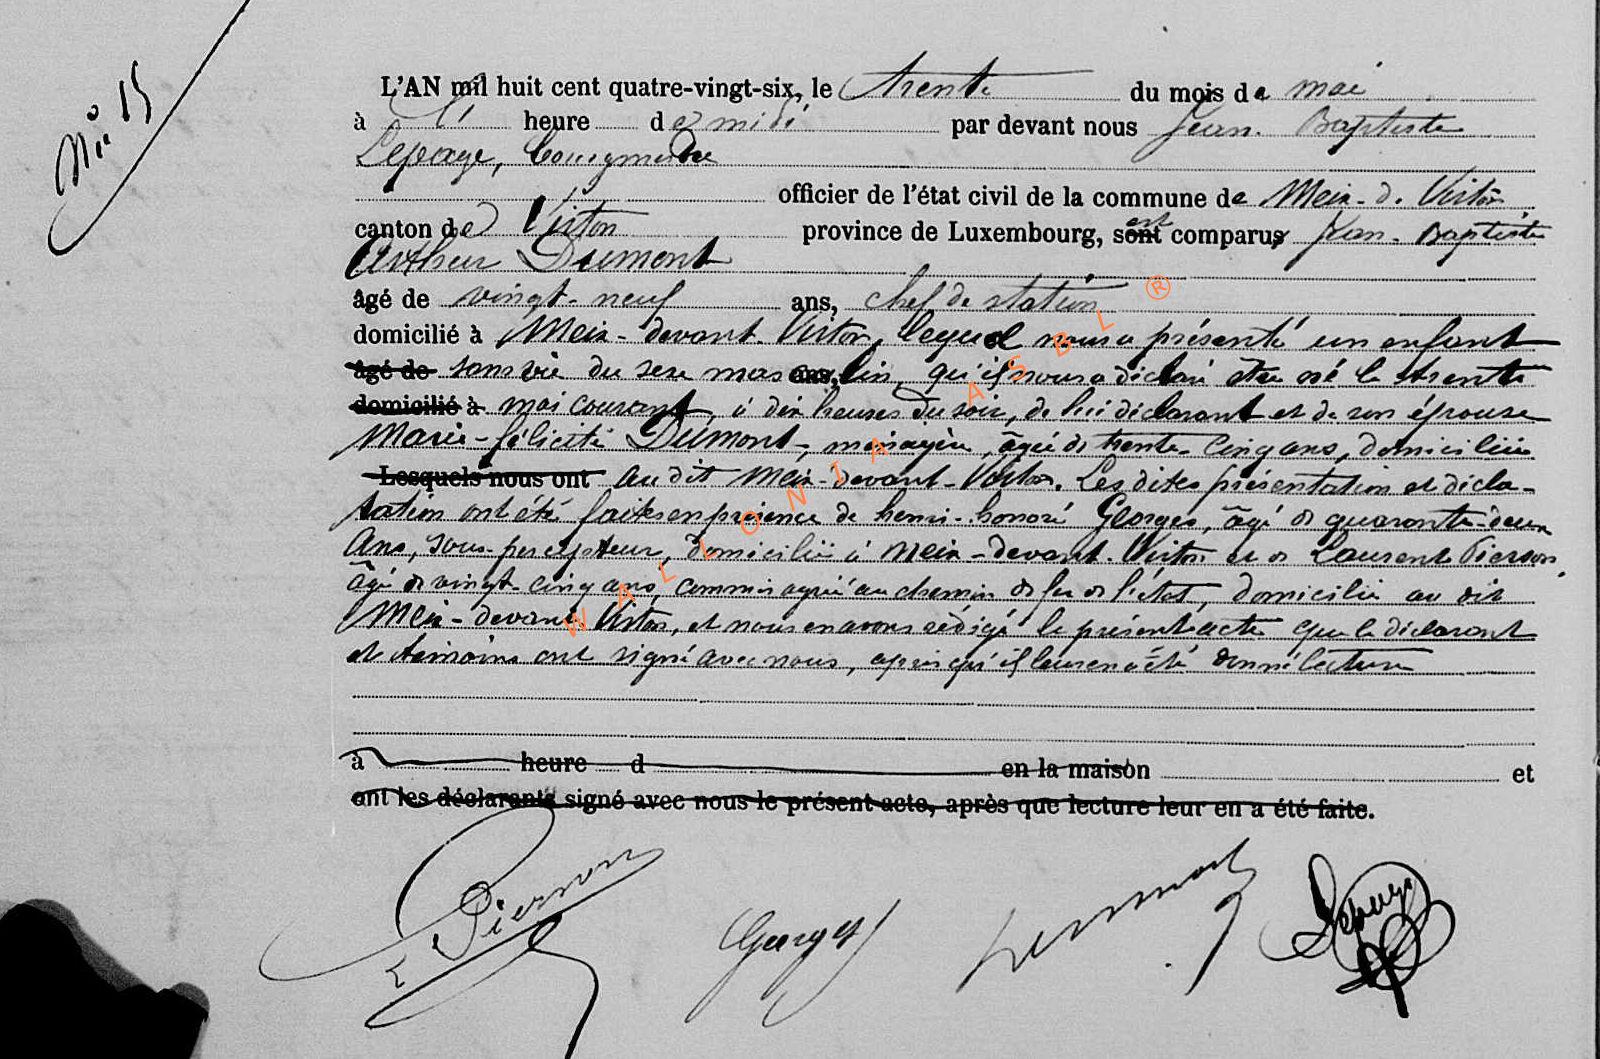 No 15
L'AN mil huit cent quatre-vingt-six, le trente du mois de mai
à heure de midi par devant nous Jean-Baptiste
Lepage, Bourgmestre
officier de l'état civil de la commune de Meix-d. Virton
canton de Virton province de Luxembourg, sont est comparus Jean-Baptiste
Arthur Dumont
âgé de vingt-neuf ans, chef de station
domicilié à Meix-devant-Virton, lequel nous a présenté un enfant
âgé de sans vie du sexe masculin, ans, qu'il nous a déclaré être né le trente
domicilié à mai courant, à dix heures du soir, de lui déclarant et de son épouse
Marie-Félicité Dumont, ménagère, âgée de trente-cinq ans, domiciliée
Lesquels nous ont au dit Meix-devant-Virton. Les dites présentation et décla-
ration ont été faites en présence de henri-honoré Georges, âgé de quarante-deux
Ans, sous-percepteur, domicilié à Meix-devant-Virton et de Laurent Pierson,
âgé de vingt-cinq ans, commis agréé au chemin de fer de l'état, domicilié au dit
Meix-devant-Virton, et nous en avons rédigé le présent acte que le déclarant
et témoins ont signé avec nous, après qu'il leur en a été donné lecture
à heure d en la maison et
ont les déclarants signé avec nous le présent acte, après que lecture leur en a été faite.
L Pierson Georges Dumont Lepage
WALLONIA ASBL ®